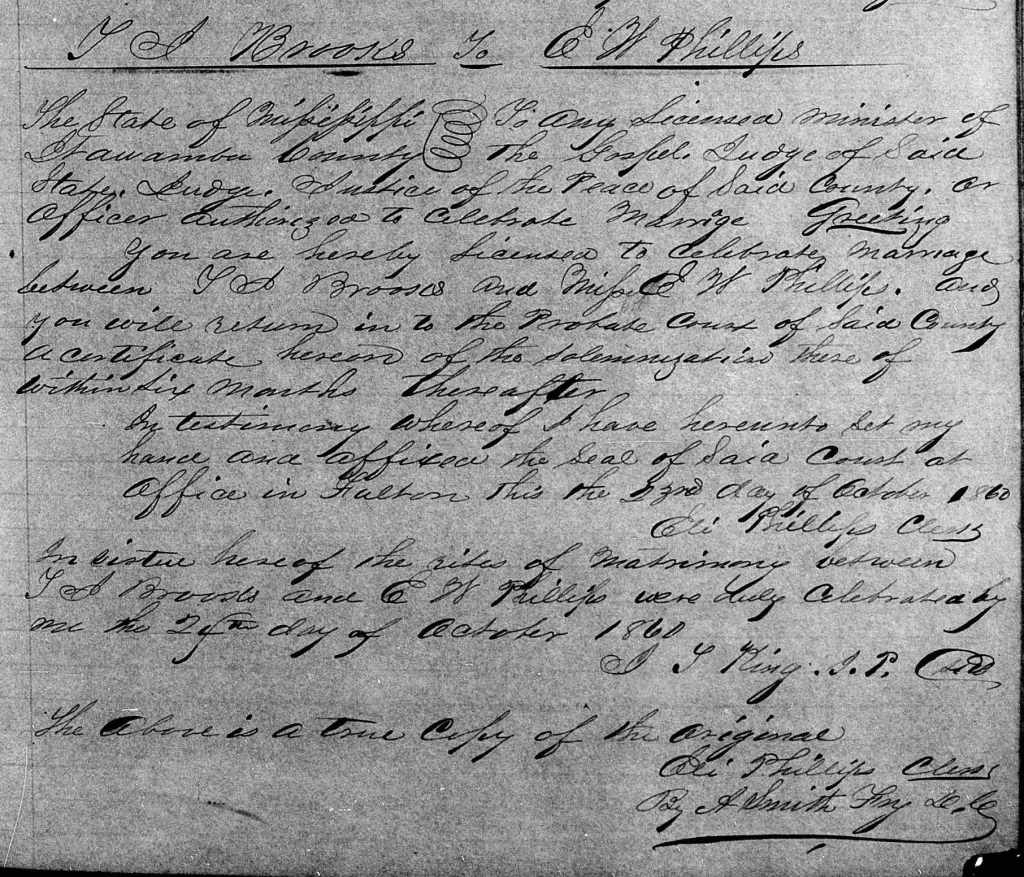 T J Brooks To E W Phillips
The State of Mississippi To any Licensed minister of
Itawamba County the Gospel. Judge of Said
State. Judge. Justice of the Peace of Said County. or
Officer authorized to Celebrate Marrige Greeting
You are hereby Licensed to Celebrate marriage
between T J Brooks and Miss E W Phillips. and
you will return in to the Probate Court of Said County
a certificate hereon of the solemnization there of
within Six months thereafter
In testimony whereof I have hereunto Set my
hand and affixed the Seal of Said Court at
Office in Fulton this the 23rd day of October 1860
Eli Phillips Clerk
In virtue hereof the rites of Matrimony between
T J Brooks and E W Phillips were duly Celebrated by
me the day of October 1860
J T King. J. P.
The above is a true Copy of the original
Eli Phillips Clerk
By A Smith D. C